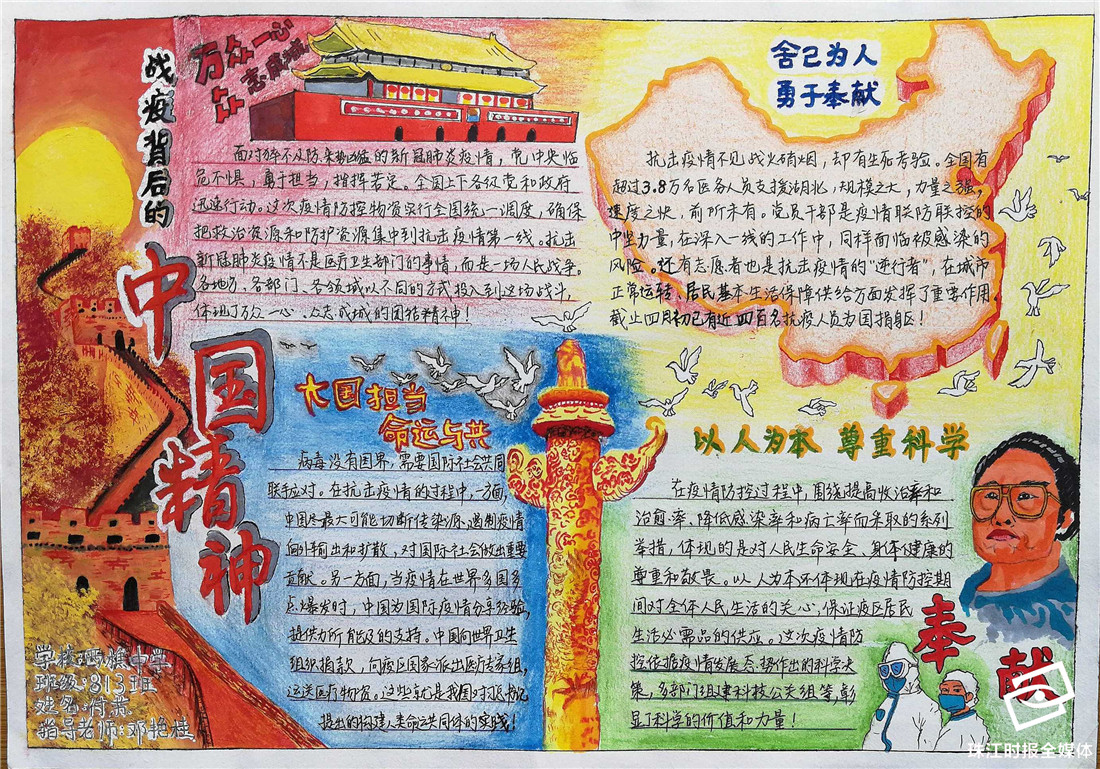 战疫背后的
中国精神
万众一心
众志成城
面对猝不及防、来势汹汹的新冠肺炎疫情，党中央临
危不惧，勇于担当，指挥若定。全国上下各级党和政府
迅速行动。这次疫情防控物资实行全国统一调度，确保
把救治资源和防护资源集中到抗击疫情第一线。抗击
新冠肺炎疫情不是医疗卫生部门的事情，而是一场人民战争。
各地方、各部门、各领域以不同的方式投入到这场战斗，
体现了万众一心、众志成城的团结精神！
舍己为人
勇于奉献
抗击疫情不见战火硝烟，却有生死考验。全国有
超过3.8万名医务人员支援湖北，规模之大，力量之强，
速度之快，前所未有。党员干部是疫情联防联控的
中坚力量，在深入一线的工作中，同样面临被感染的
风险。还有志愿者也是抗击疫情的“逆行者”，在城市
正常运转、居民基本生活保障供给方面发挥了重要作用。
截止四月初已有近四百名抗疫人员为国捐躯！
大国担当
命运与共
病毒没有国界，需要国际社会共同
联手应对。在抗击疫情的过程中，一方面，
中国尽最大可能切断传染源、遏制疫情
向外输出和扩散，对国际社会做出重要
贡献。另一方面，当疫情在世界多国多
点爆发时，中国为国际疫情分享经验，
提供力所能及的支持。中国向世界卫生
组织捐款，向疫区国家派出医疗专家组，
运送医疗物资。这些就是我国对
提出的构建人类命运共同体的实践！
以人为本 尊重科学
在疫情防控过程中，围绕提高收治率和
治愈率、降低感染率和病亡率而采取的系列
举措，体现的是对人民生命安全、身体健康的
尊重和敬畏。以人为本还体现在疫情防控期
间对全体人民生活的关心，保证疫区居民
生活必需品的供应。这次疫情防
控依据疫情发展态势作出的科学决
策，多部门组建科技公关组等，彰
显了科学的价值和力量！
奉献
学校:西樵中学
班级:813班
姓名:付燕
指导老师:邓艳桂
珠江时报全媒体